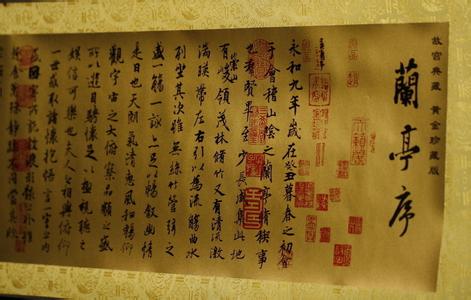 故宫典藏 黄金珍藏版
蘭亭序
永和九年歲在癸丑暮春之初會
于會稽山陰之蘭亭脩稧事
也羣賢畢至少長咸集此地
有崇山峻領茂林脩竹又有清流激
湍暎帶左右引以為流觴曲水
列坐其次雖無絲竹管弦之
盛一觴一詠亦足以暢敘幽情
是日也天朗氣清惠風和暢仰
觀宇宙之大俯察品類之盛
所以遊目騁懷足以極視聽之
娛信可樂也夫人之相與俯仰
一世或取諸懷抱悟言一室之內
或因寄所託放浪形骸之外雖
趣舍萬殊靜躁不同當其欣